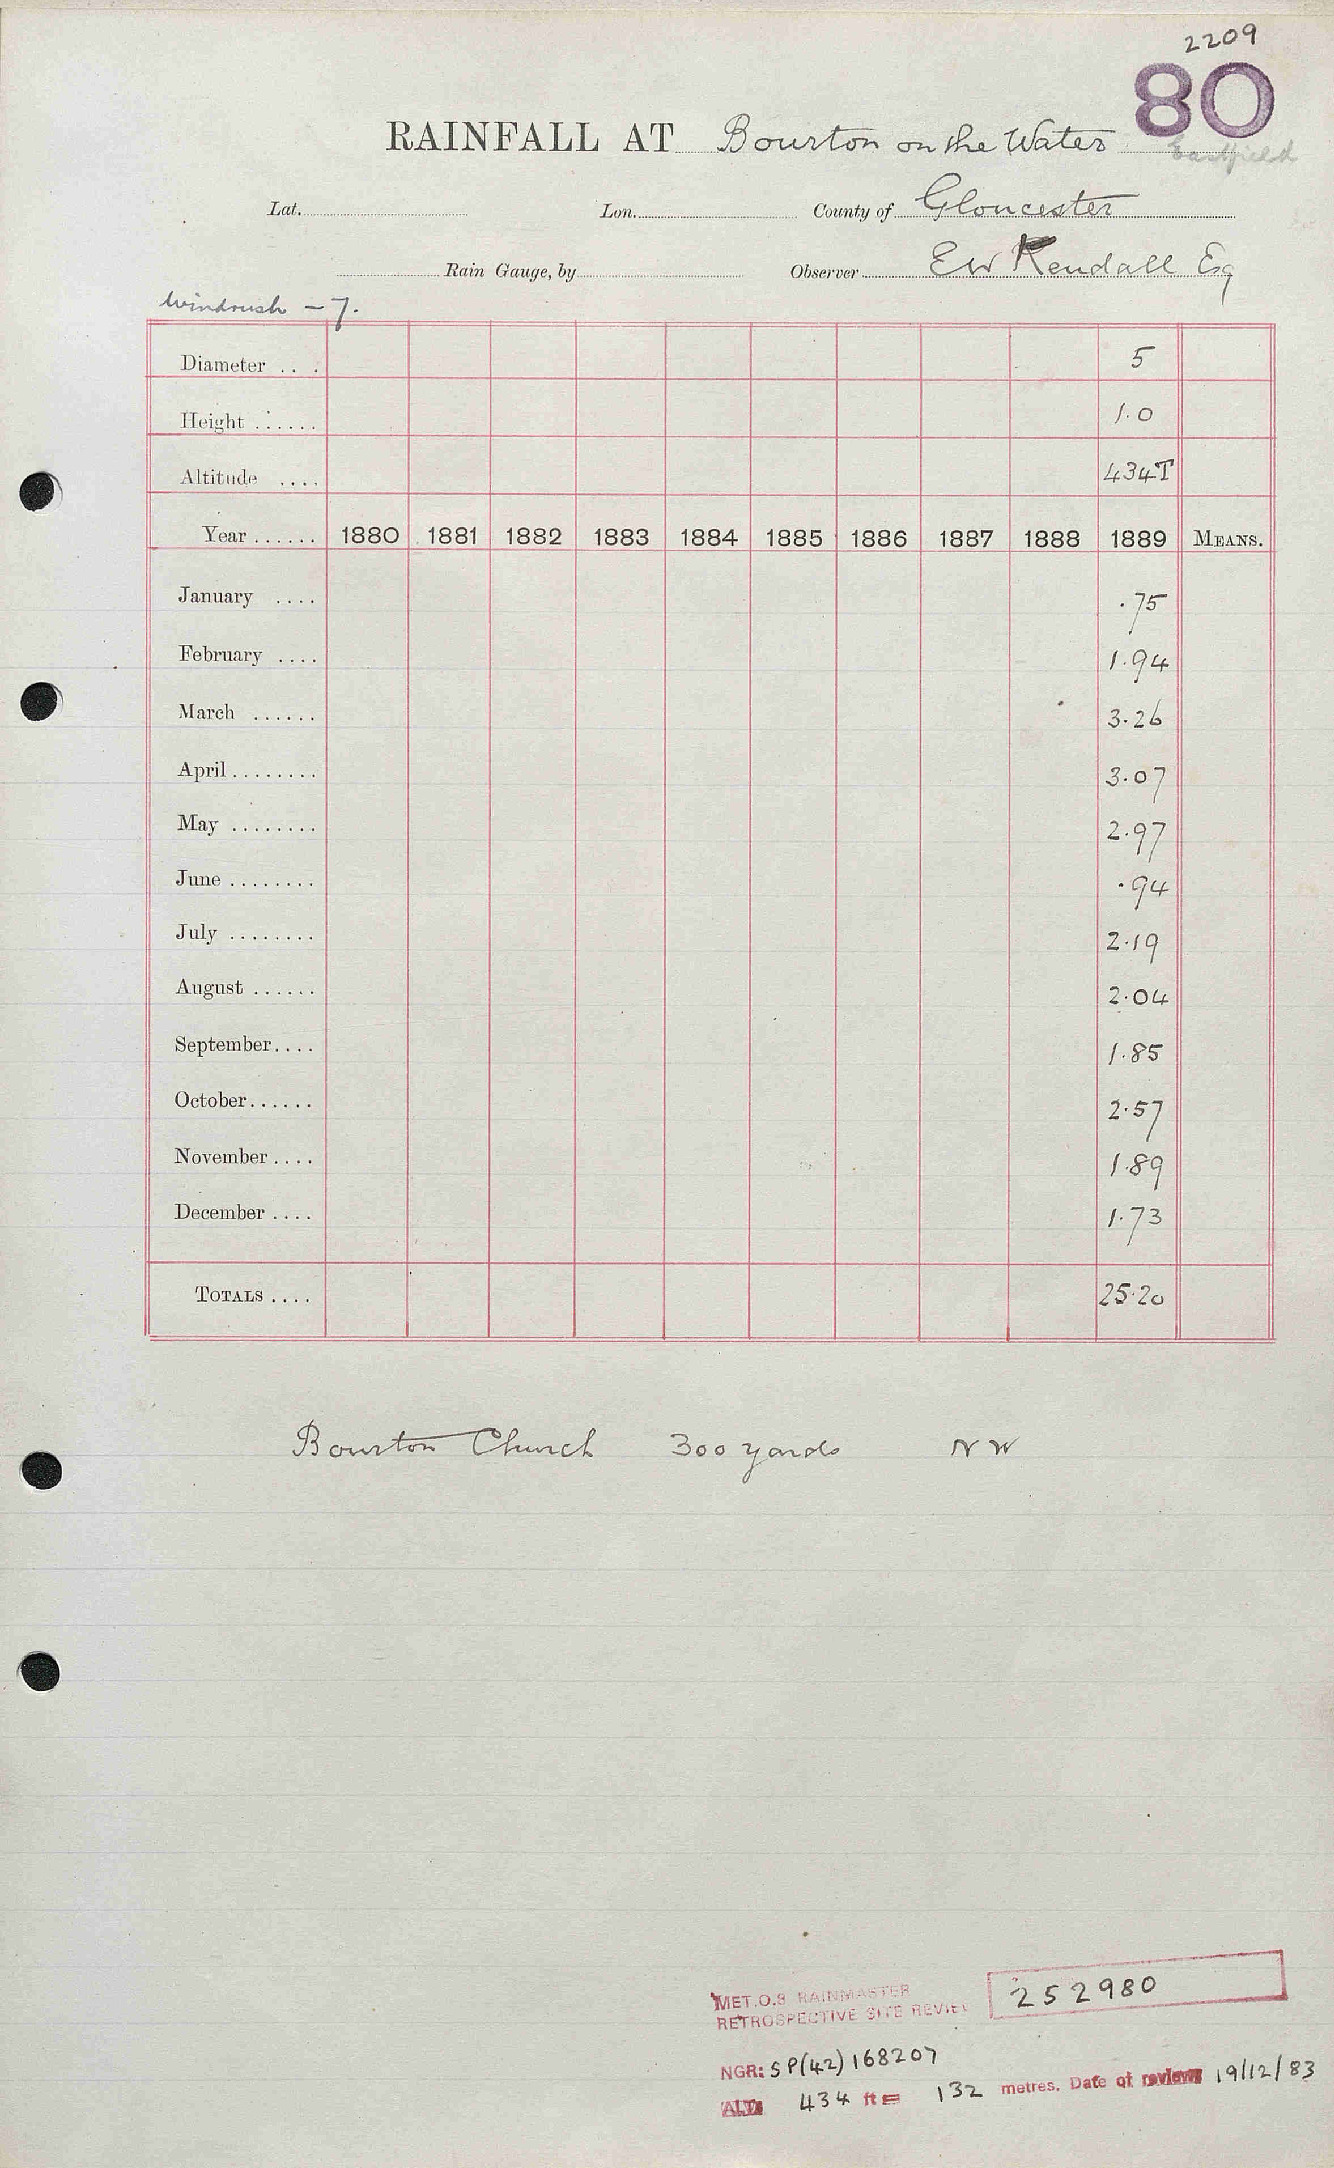 2209
80
RAINFALL AT Bourton on the Water
Eastfield
Lat. Lon. County of Gloucester
Rain Gauge, by Observer EW Kendall Esq
Windrush - 7.
Diameter ... 5
Height ...... 1.0
Altitude .... 434T
Year ...... 1880 1881 1882 1883 1884 1885 1886 1887 1888 1889 MEANS.
January .... .75
February .... 1.94
March ...... 3.26
April ........ 3.07
May ........ 2.97
June ........ .94
July ........ 2.19
August ...... 2.04
September.... 1.85
October...... 2.57
November.... 1.89
December .... 1.73
TOTALS .... 25.20
Bourton Church 300 yards NW
MET.O.8 RAINMASTER
RETROSPECTIVE SITE REVIEW 252980
NGR: SP(42)168207
ALT: 434 ft = 132 metres. Date of review 19/12/83